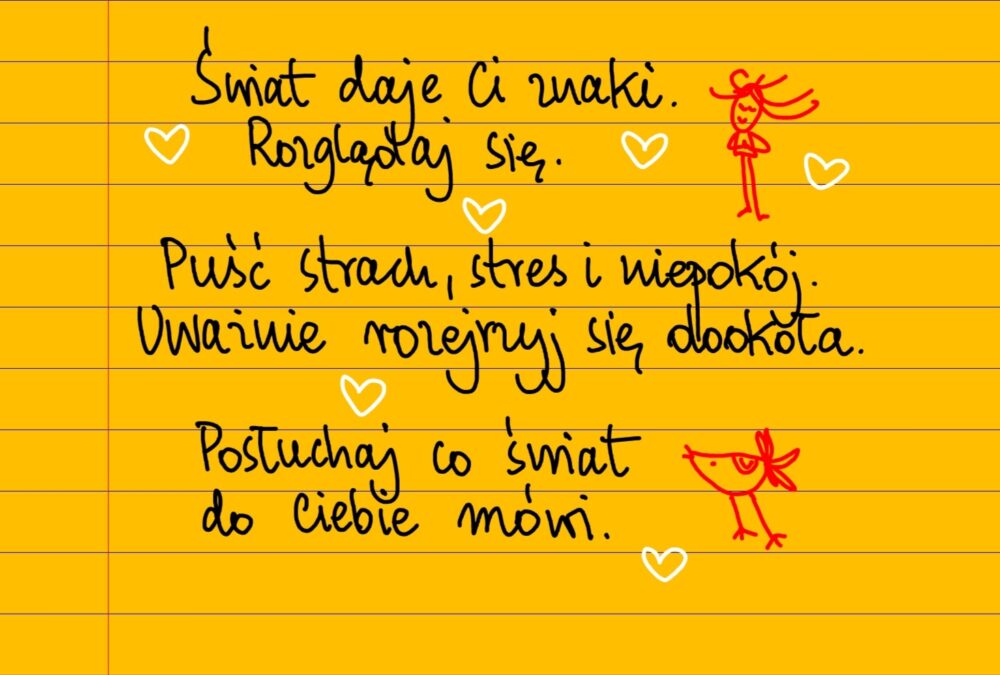 Świat daje Ci znaki.
Rozglądaj się.
Puść strach, stres i niepokój.
Uważnie rozejrzyj się dookoła.
Posłuchaj co świat
do Ciebie mówi.